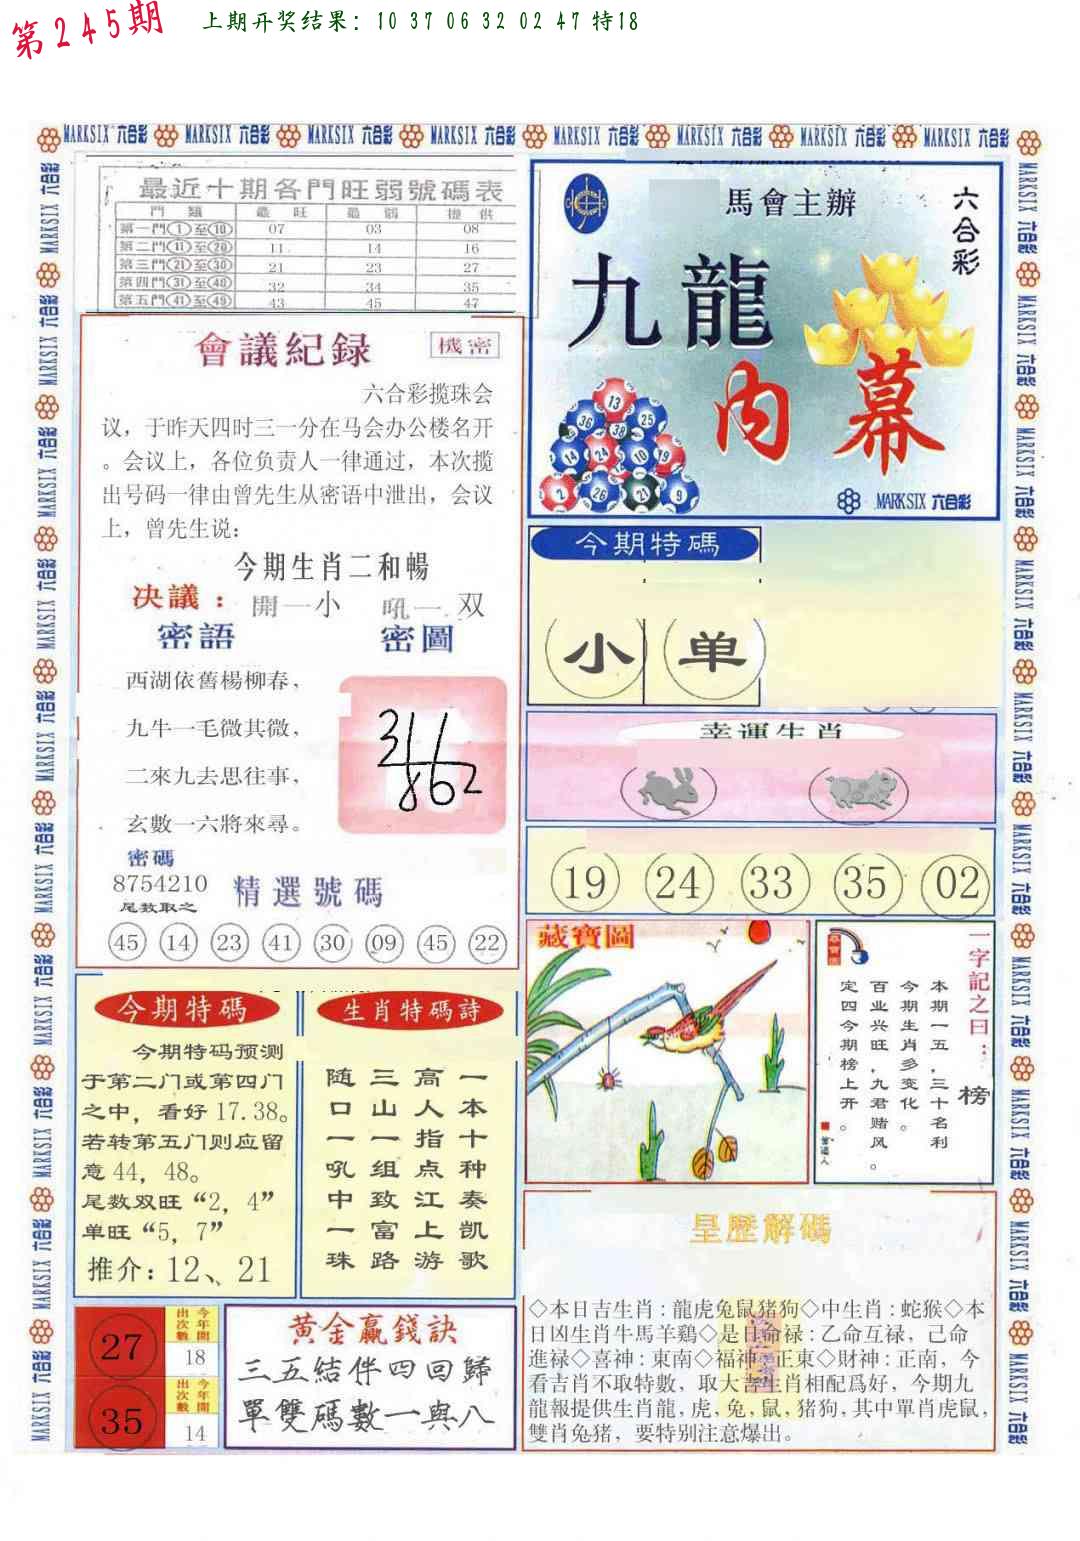 第245期
上期开奖结果：10 37 06 32 02 47 特18
MARKSIX 六合彩 MARKSIX 六合彩 MARKSIX 六合彩 MARKSIX 六合彩 MARKSIX 六合彩 MARKSIX 六合彩 MARKSIX 六合彩 MARKSIX 六合彩
最近十期各門旺弱號碼表
門類 最旺 最弱 提供
第一門①至⑩ 07 03 08
第二門⑪至⑳ 11 14 16
第三門㉑至㉚ 21 23 27
第四門㉛至㊵ 32 34 35
第五門㊶至㊾ 43 45 47
馬會主辦
六合彩
九龍
内幕
13
36 25
14 24 10 19
2 26 21 9
MARKSIX 六合彩
會議紀録
機密
六合彩揽珠会
议，于昨天四时三一分在马会办公楼名开
。会议上，各位负责人一律通过，本次揽
出号码一律由曾先生从密语中泄出，会议
上，曾先生说：
今期生肖二和暢
决議： 開一小 吼一 双
密語 密圖
西湖依舊楊柳春，
九牛一毛微其微，
二來九去思往事，
玄數一六將來尋。
密碼
8754210
尾数取之
精選號碼
45 14 23 41 30 09 45 22
今期特碼
小 单
幸運生肖
19 24 33 35 02
藏寶圖
一字記之曰：
榜
本期一五，三十名利
今期生肖多变化。
百业兴旺，九君赌风。
定四今期榜上开。
今期特碼
今期特码预测
于第二门或第四门
之中，看好17.38。
若转第五门则应留
意44，48。
尾数双旺“2，4”
单旺“5，7”
推介：12、21
生肖特碼詩
随三高一
口山人本
一一指十
吼组点种
中致江奏
一富上凯
珠路游歌
皇歷解碼
◇本日吉生肖：龍虎兔鼠猪狗◇中生肖：蛇猴◇本
日凶生肖牛馬羊鷄◇是日命禄：乙命互禄，己命
進禄◇喜神：東南◇福神：正東◇財神：正南，今
看吉肖不取特數，取大吉生肖相配爲好，今期九
龍報提供生肖龍，虎，兔，鼠，猪狗，其中單肖虎鼠，
雙肖兔猪，要特别注意爆出。
27
今年開出次數
18
35
今年開出次數
14
黄金贏錢訣
三五結伴四回歸
單雙碼數一與八